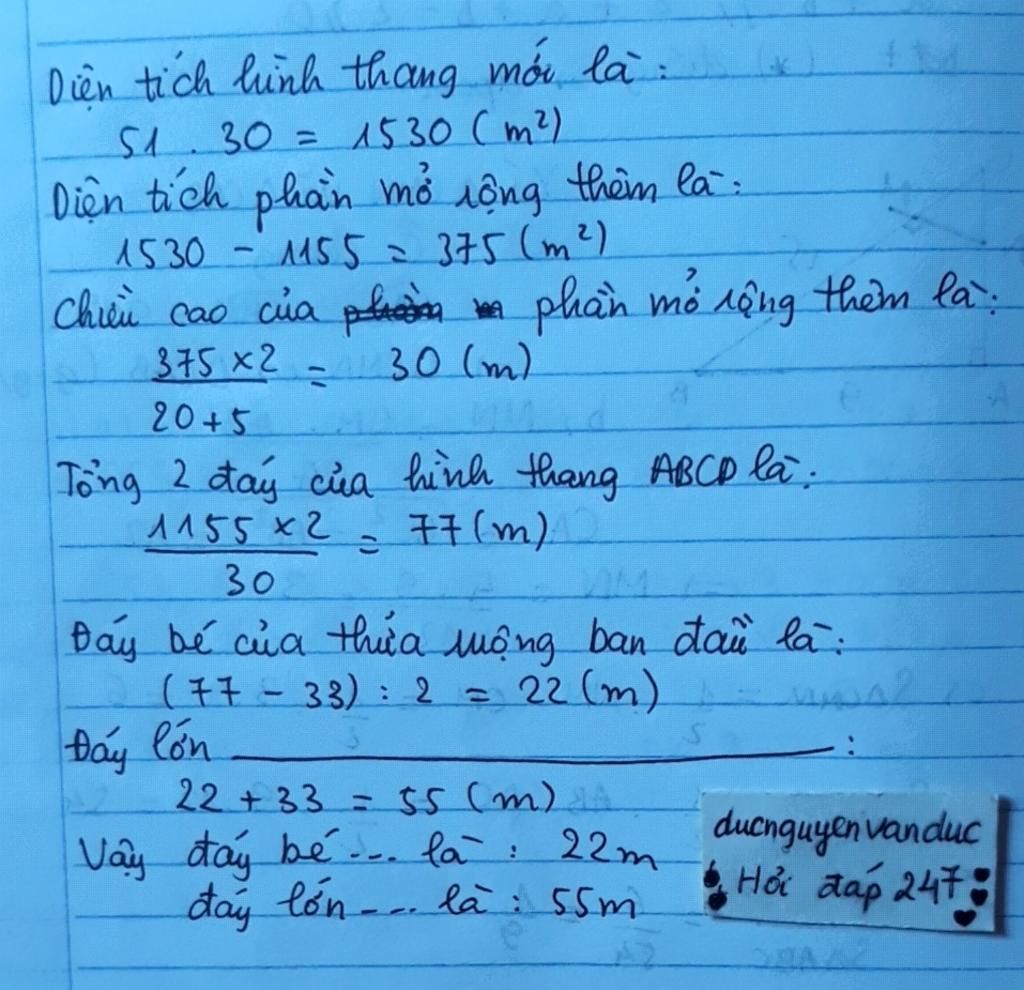 Diện tích hình thang mới là :
51 . 30 = 1530 (m²)
Diện tích phần mở rộng thêm là :
1530 - 1155 = 375 (m²)
Chiều cao của phần mở rộng thêm là :
375 x 2 = 30 (m)
20 + 5
Tổng 2 đáy của hình thang ABCD là :
1155 x 2 = 77 (m)
30
Đáy bé của thửa ruộng ban đầu là :
(77 - 33) : 2 = 22 (m)
Đáy lớn ______ :
22 + 33 = 55 (m)
Vậy đáy bé ... là : 22m
đáy lớn ... là : 55m
ducnguyenvanduc
Hỏi đáp 247